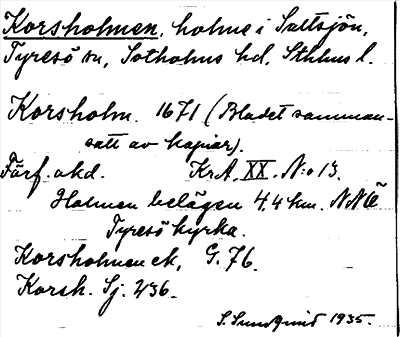 Korsholmen, holme i Saltsjön,
Tyresö sn, Sotholms hd, Sthlms l.
Korsholm. 1671 (Bladet samman-
satt av kapior).
Färf. okd. KrA. XX. N:o 13.
Holmen belägen 4,4 km. NNÖ
Tyresö kyrka.
Korsholmen ek, G. 76.
Korsh. Sj. 236.
S. Sundquist 1935.